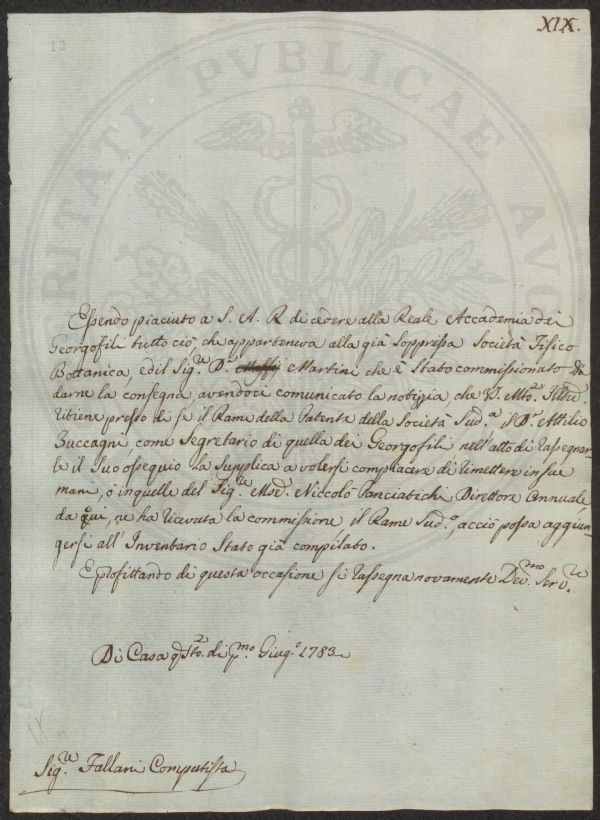 XIX.
12
Essendo piaciuto a S. A. R. di cedere alla Reale Accademia dei
Georgofili tutto ciò che apparteneva alla già soppressa Società Fisico
Bottanica, ed il Sig.re D.r Martini che è stato commissionato di
darne la consegna, avendoci comunicato la notizia che V. S. Mto. Illre.
ritiene presso di se il Rame della Patente della Società Sud.a il D.r Attilio
Zuccagni come Segretario di quella dei Georgofili, nell'atto di rassegnar-
le il suo ossequio la supplica a volersi compiacere di rimettere in sue
mani, ò in quelle del Sig.re Niccolò Panciatichi Direttore Annuale,
da qui, ne ha ricevuta la commissione il Rame Sud.o, acciò possa aggiun-
gersi all'Inventario Stato già compilato.
E profittando di questa occasione si rassegna novamente Dev.mo Serv.re
Di Casa q.sto. di p.mo Giug.o 1783.
Sig.re Fallani Computista
VERITATI PVBLICAE